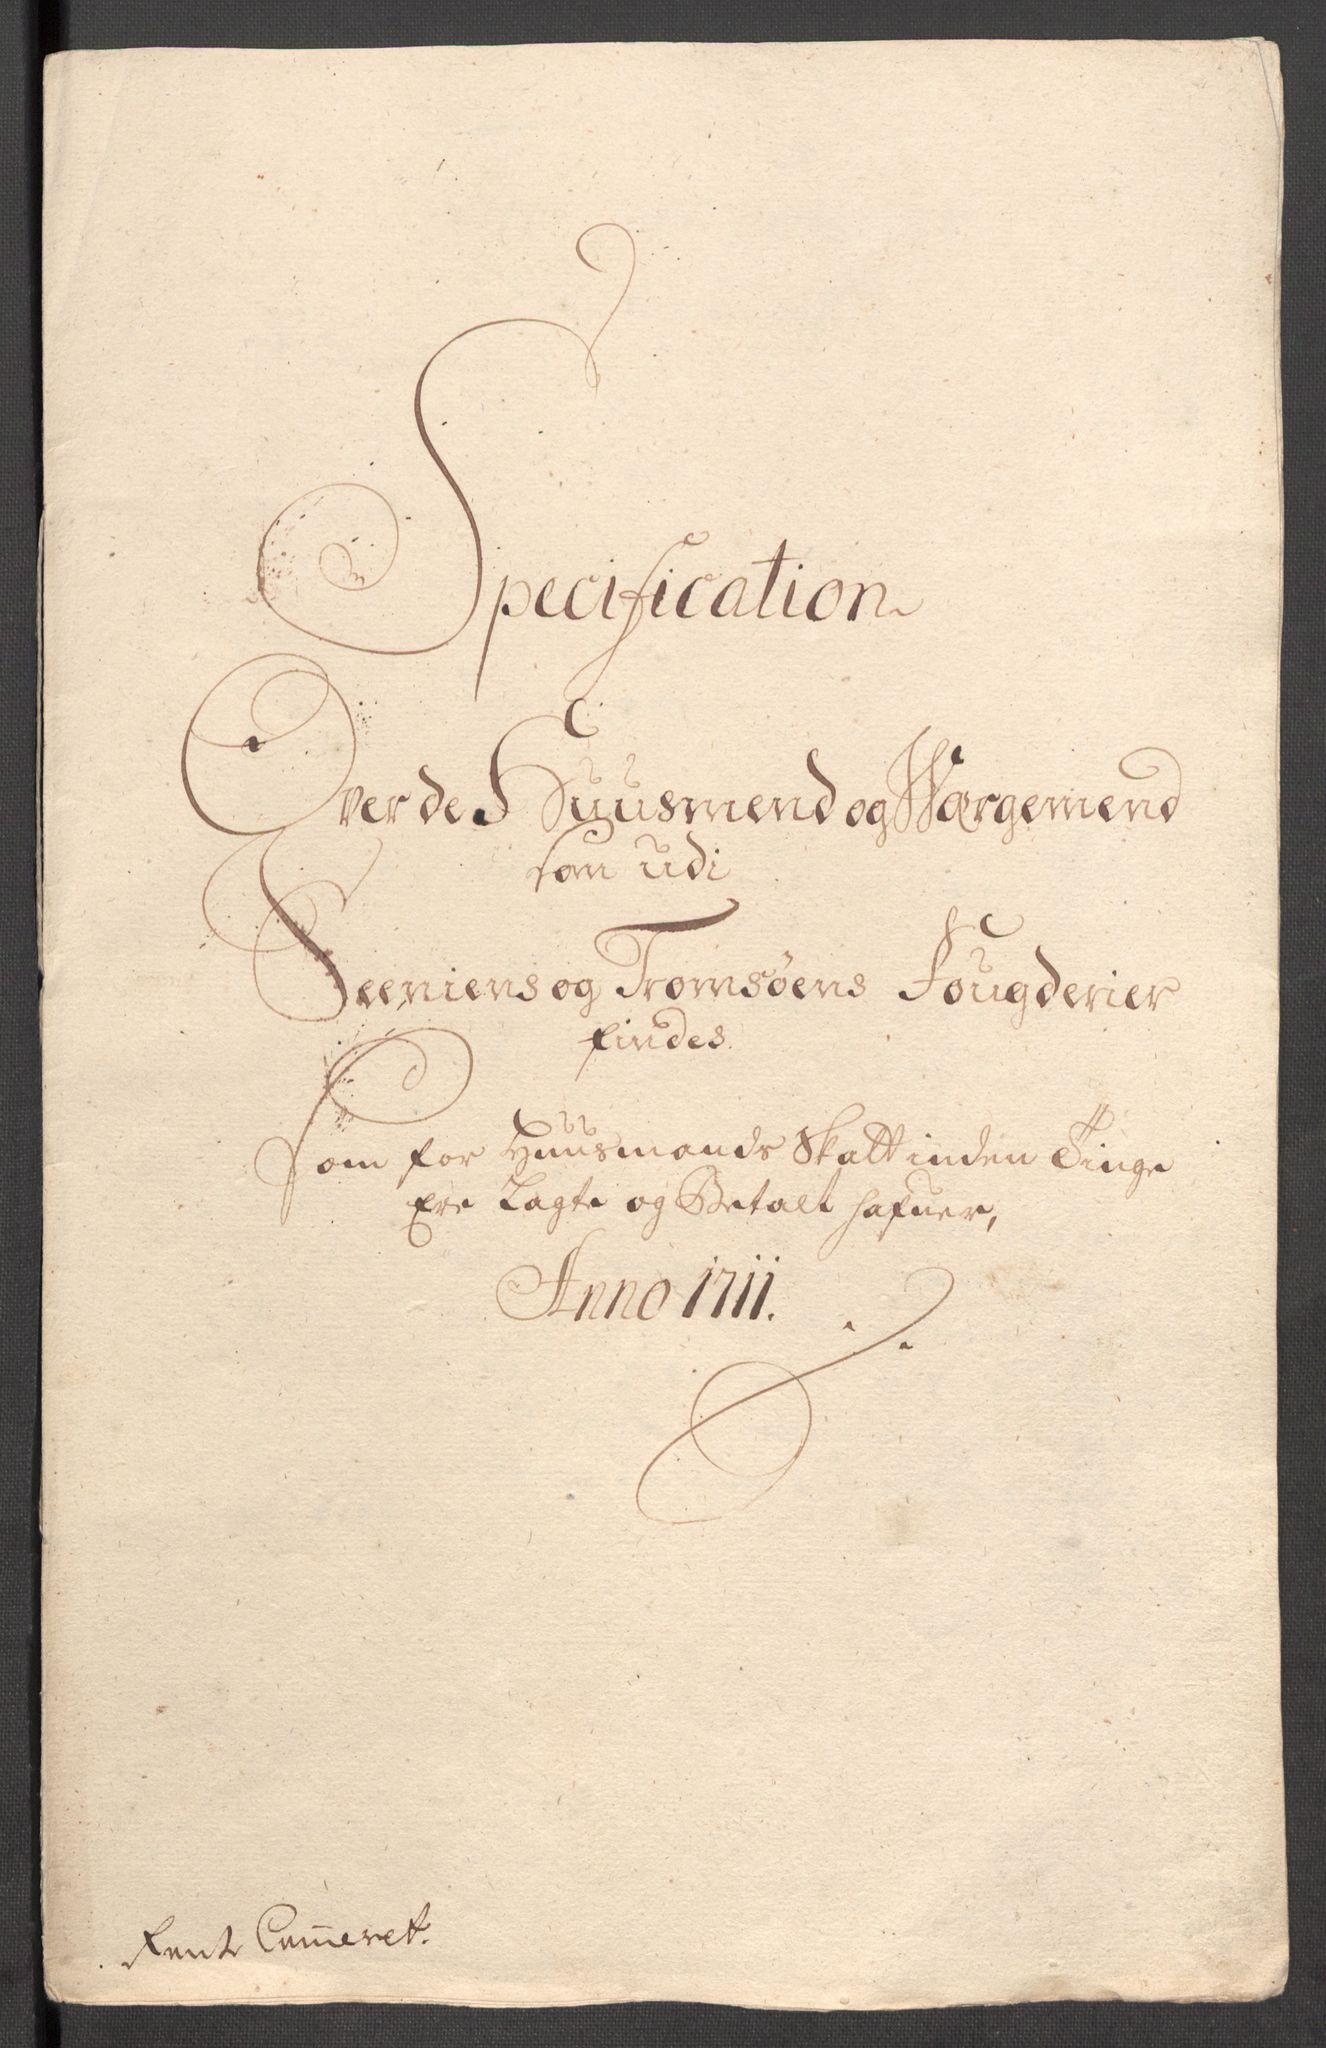 Specification
Over de Huusmend og Wærgemend
som udi
Seeniens og Tromsøens Fougderier
findes
Som for Huusmands Skatt inden Tinge
Ere Lagte og Betalt hafuer,
Anno 1711.
Rente Cam̄eret.